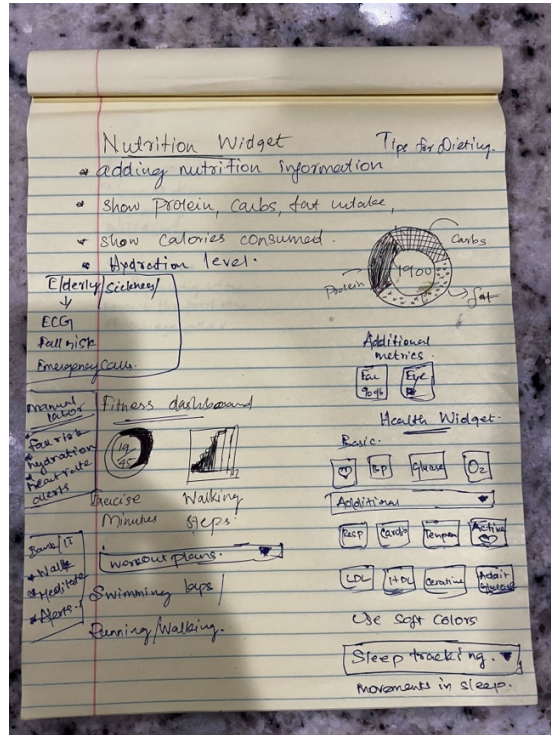 Nutrition Widget
Tips for Dieting.
adding nutrition information
show Protein, Carbs, fat intake,
show calories consumed.
Hydration level.
Carbs
1900
Protein
fat
Elderly/Sickness/
ECG
fall risk
Emergency Calls.
Additional
metrics.
Ear
Eye
manual
labor
fall risk
hydration
heart rate
alerts
Fitness dashboard
19/45
Minutes
Walking
steps.
Health Widget.
Basic.
BP
Glucose
O2
Additional
Resp
Cardio
Active
LDL
HDL
Bank/IT
Walk
Meditate
Alerts.
workout plans.
Swimming laps/
Running/Walking.
Use Soft Colors
Sleep tracking.
movements in sleep.